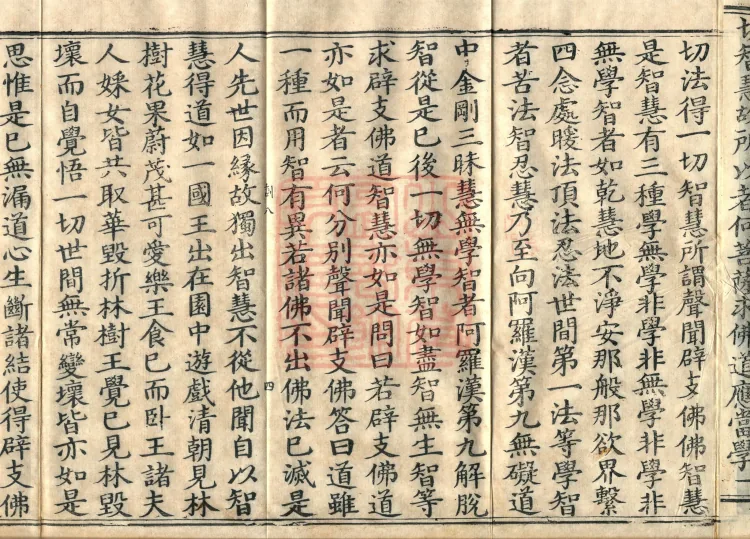 切智慧故所以者何菩薩求佛道應當學一
切法得一切智慧所謂聲聞辟支佛佛智慧
是智慧有三種學無學非學非無學非學非
無學智者如乾慧地不淨安那般那欲界繫
四念處暖法頂法忍法世間第一法等學智
者苦法智忍慧乃至向阿羅漢第九無礙道
中金剛三昧慧無學智者阿羅漢第九解脫
智從是已後一切無學智如盡智無生智等
求辟支佛道智慧亦如是問曰若辟支佛道
亦如是者云何分別聲聞辟支佛荅曰道雖
一種而用智有異若諸佛不出佛法已滅是
四
人先世因緣故獨出智慧不從他聞自以智
慧得道如一國王出在園中遊戲清朝見林
樹花果蔚茂甚可愛樂王食已而臥王諸夫
人婇女皆共取華毀折林樹王覺已見林毀
壞而自覺悟一切世間無常變壞皆亦如是
思惟是已無漏道心生斷諸結使得辟支佛